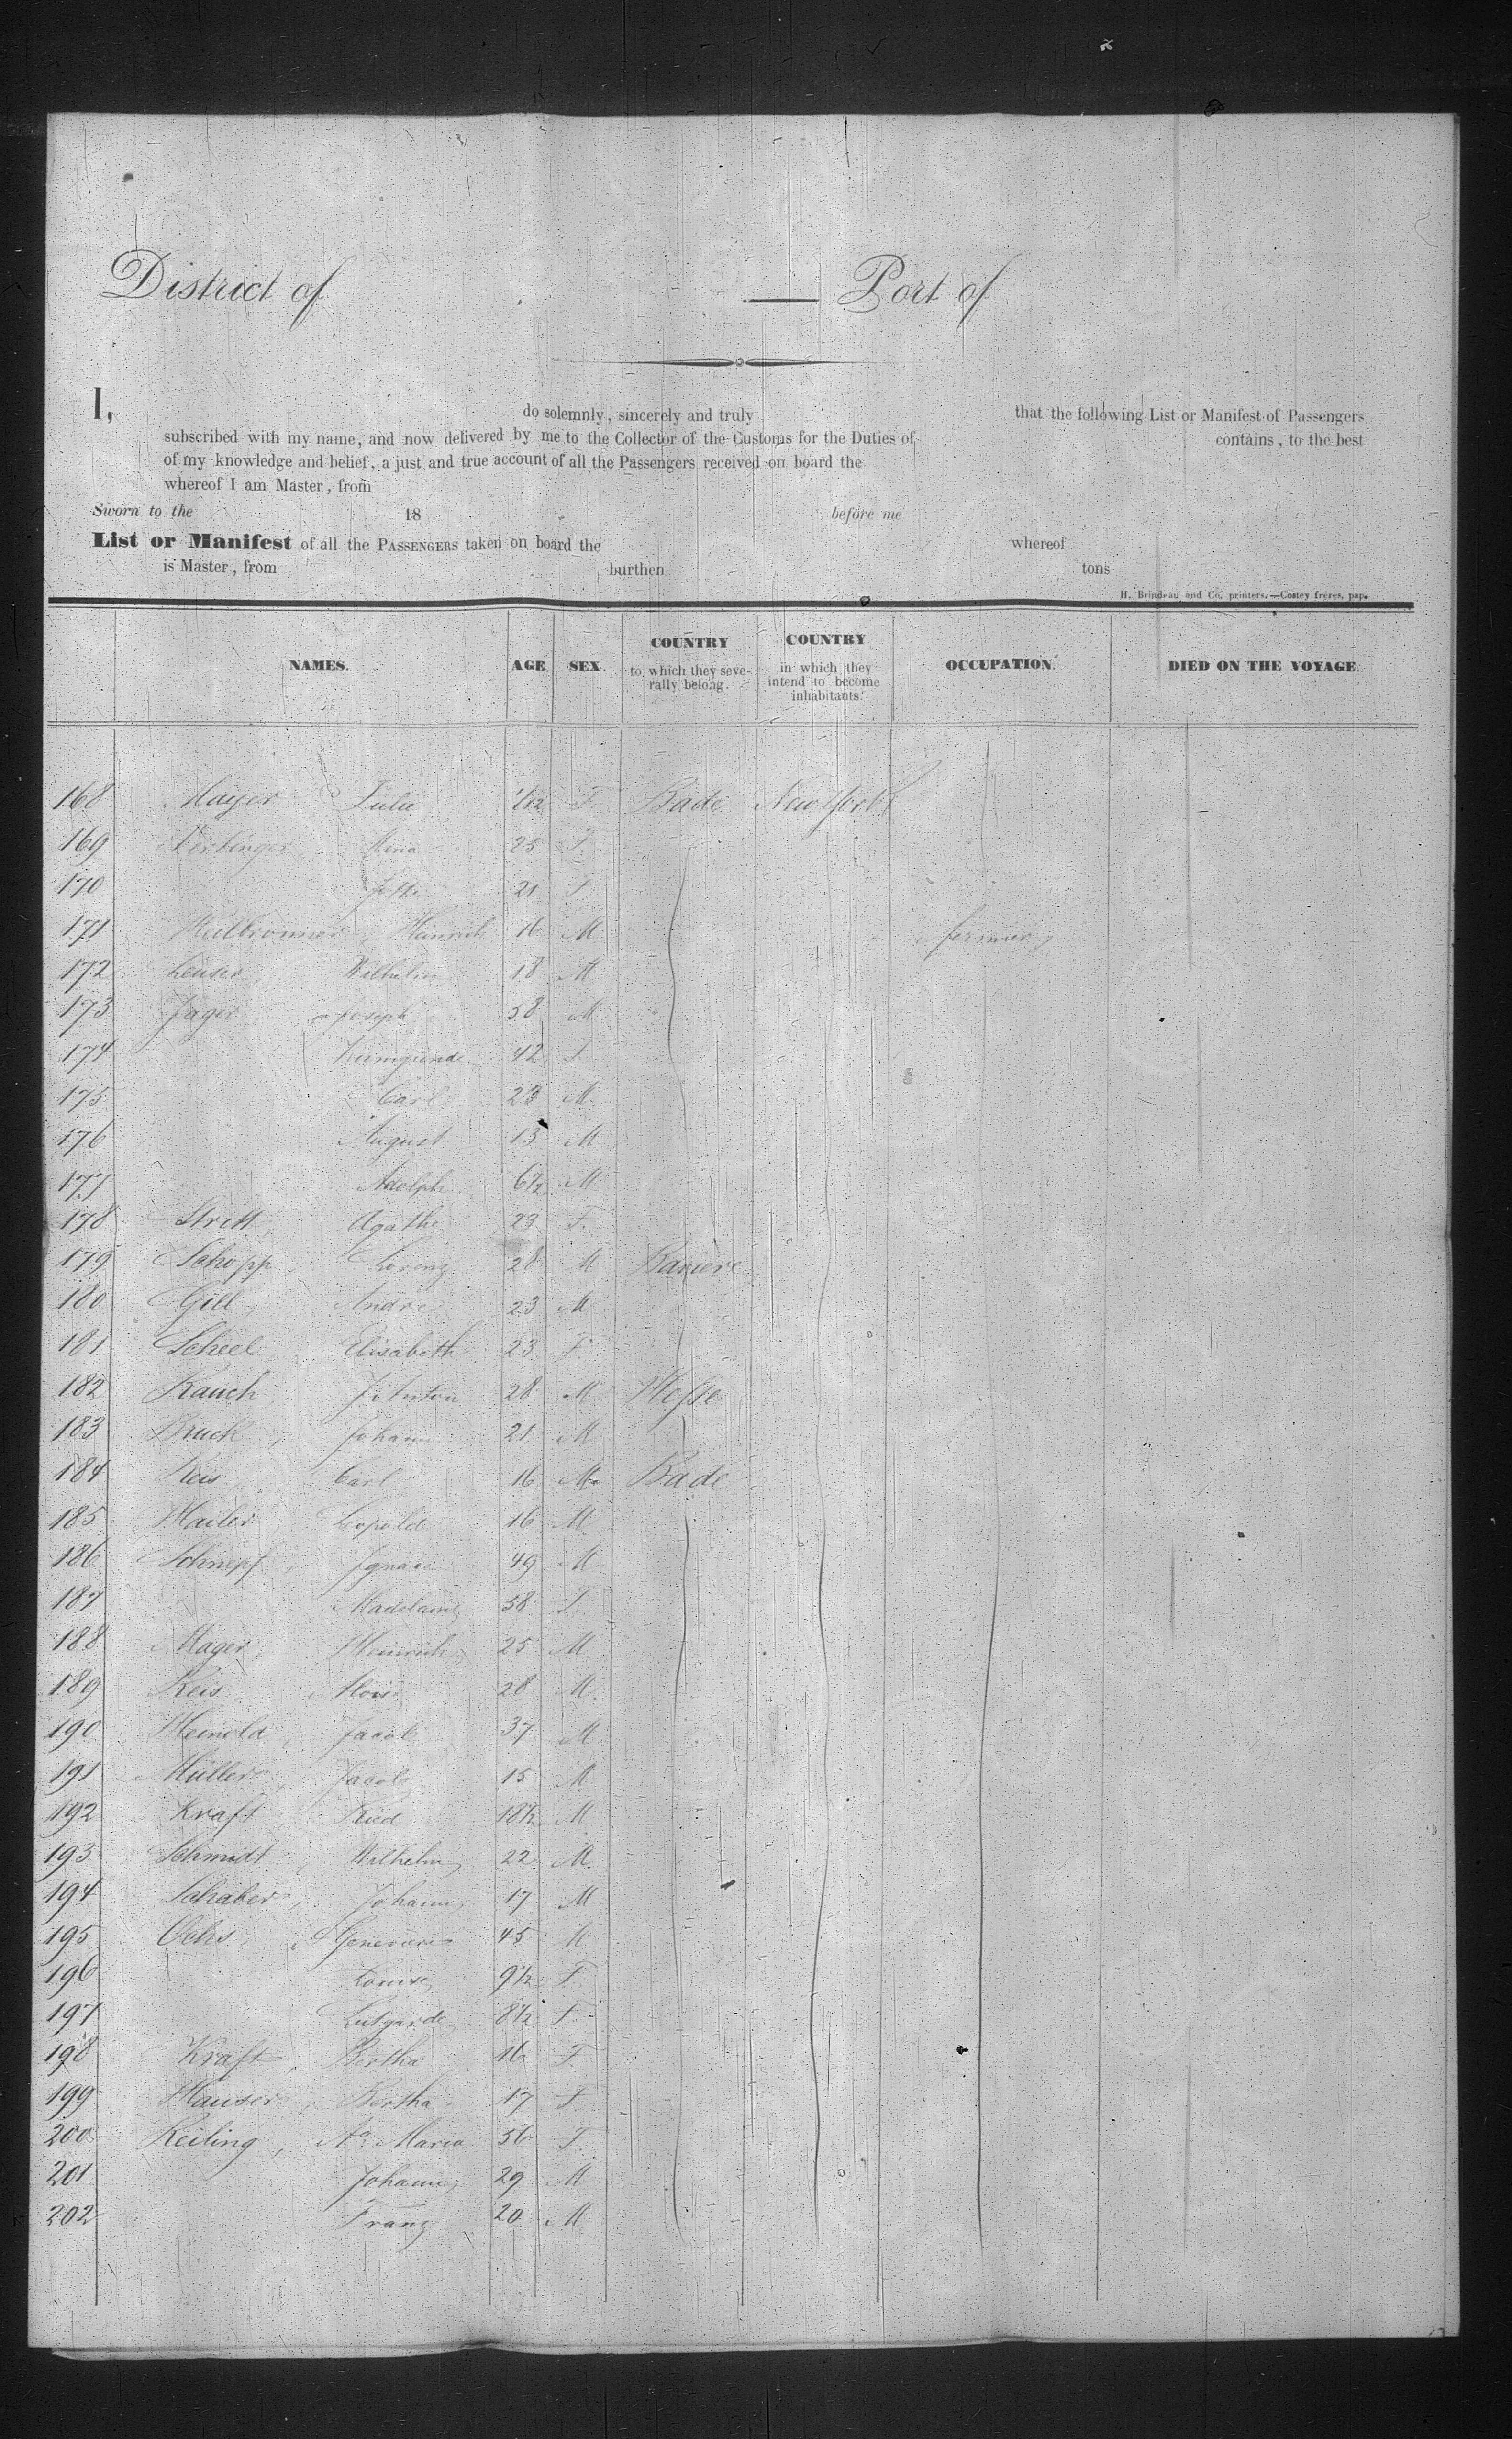 District of — Port of
I, do solemnly, sincerely and truly that the following List or Manifest of Passengers
subscribed with my name, and now delivered by me to the Collector of the Customs for the Duties of contains, to the best
of my knowledge and belief, a just and true account of all the Passengers received on board the
whereof I am Master, from
Sworn to the 18 before me
List or Manifest of all the PASSENGERS taken on board the whereof
is Master, from burthen tons
H. Brindeau and Co. printers.—Costey frères, pap.
NAMES. AGE. SEX. COUNTRY to which they severally belong. COUNTRY in which they intend to become inhabitants. OCCUPATION. DIED ON THE VOYAGE.
168 Mayer Julie 1/12 F. Bade New York
169 Mina 25 F.
170 21 F
171 Heilbronner, Heinrich 16 M
172 Wilhelm 18 M
173 Jager Joseph 58 M
174 42 F
175 Carl 23 M
176 August 13 M
177 Adolph 6½ M
178 Stritt, Agathe 23 F.
179 Schopp, Lorenz 28 M Baviere
180 Gill, Andre 23 M
181 Scheel Elisabeth 23 F.
182 Rauch J. Anton 28 M Hesse
183 Bruck, Johann 21 M
184 Reis Carl 16 M Bade
185 Leopold 16 M
186 Schnepf Ignace 49 M
187 Madelaine 58 F.
188 Mager Heinrich 25 M
189 Reis 28 M.
190 Heinold, Jacob 37 M
191 Müller, Jacob 15 M
192 Kraft 18½ M
193 Schmidt, Wilhelm 22 M.
194 Schaber, Johann 17 M
195 Ochs, Genevieve 45 M
196 Louise 9½ F.
197 Lutgarde 8½ F.
198 Kraft, Bertha 16 F.
199 Hauser, Bertha 17 F.
200 Keiling, Aa Maria 56 F.
201 Johann 29 M
202 Franz 20 M